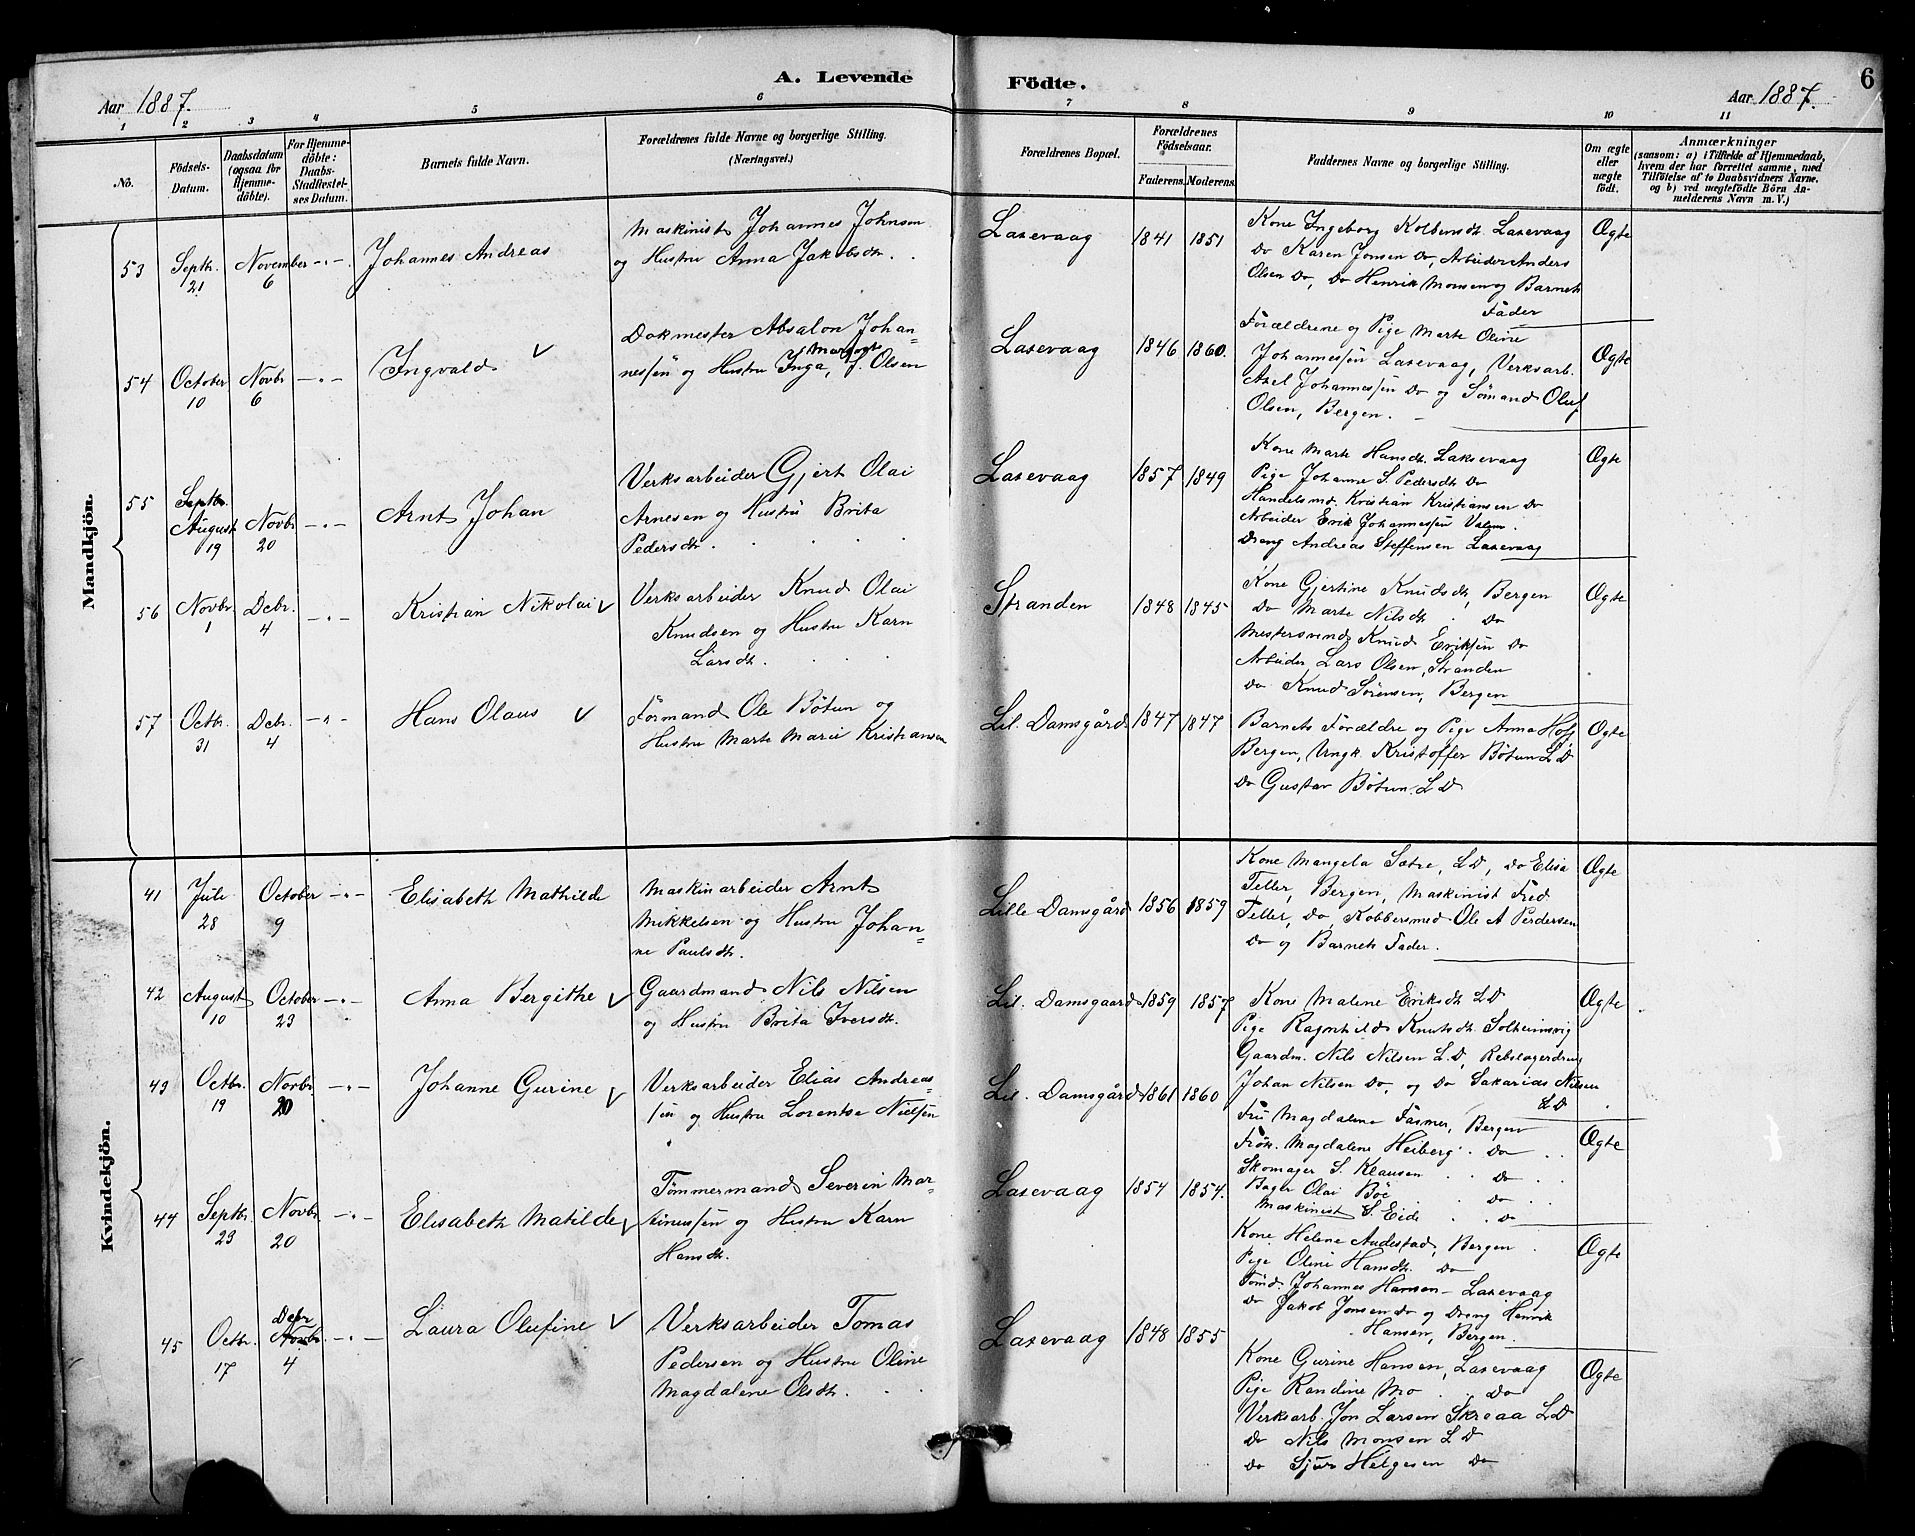 A. Levende Födte.
6
Aar 1887.
Aar 1887.
1 2 3 4 5 6 7 8 9 10 11
No.
Födsels-Datum.
Daabsdatum (ogsaa for Hjemmedöbte).
For Hjemmedöbte: Daabs-Stadfæstelses Datum.
Barnets fulde Navn.
Forældrenes fulde Navne og borgerlige Stilling. (Næringsvei.)
Forældrenes Bopæl.
Forældrenes Födselsaar.
Faderens. Moderens.
Faddernes Navne og borgerlige Stilling.
Om ægte eller uægte födt.
Anmærkninger
(saasom: a) i Tilfælde af Hjemmedaab,
hvem der har forrettet samme, med
Tilföielse af to Daabsvidners Navne.
og b) ved uægtefödte Börn An-
melderens Navn m. V.)
Mandkjön.
53
Septbr. 21
November 6
-"-
Johannes Andreas
Maskinist Johannes Johnsen
og Hustru Anna Jakobsdtr.
Laxevaag
1841
1851
Kone Ingeborg Kolbensdtr. Laxevaag
Do Karen Jonsen Do, Arbeider Anders
Olsen Do, Do Henrik Monsen og Barnets
Fader
Ægte
54
October 10
Novbr 6
-"-
Ingvald ✓
Dokmester Absalon Johan=
nessen og Hustru Inga, Margrete J. Olsen
Laxevaag
1846
1860.
Forældrene og Pige Marte Oline
Johannessen Laxevaag, Verksarb.
Axel Johannessen Do og Sömand Oluf
Olsen, Bergen.
Ægte
55
Septbr. August 19
Novbr 20
-"-
Arnt Johan
Verksarbeider Gjert Olai
Arnesen og Hustru Brita
Pedersdtr.
Laxevaag
1857
1849
Kone Marte Hansdtr. Laksevaag
Pige Johanne S. Pedersdtr Do
Handelsmd. Kristian Kristiansen Do
Arbeider Erik Johannessen
Dreng Andreas Steffensen Laxevaag
Ægte
56
Novbr. 1
Debr. 4
-"-
Kristian Nikolai ✓
Verksarbeider Knud Olai
Knudsen og Hustru Karn
Larsdtr.
Stranden
1848
1845
Kone Gjertine Knudsdtr, Bergen
Do Marte Nilsdtr Do
Mestersvend Knud Eriksen Do
Arbeider Lars Olsen, Stranden
Do Knud Sörensen, Bergen
Ægte
57
Octbr. 31
Debr. 4
-"-
Hans Olaus ✓
Formand Ole Bötun og
Hustru Marte Marie Kristiansen
Lil. Damsgård.
1847
1847
Barnets Forældre og Pige Anna Hof
Bergen, Ungk. Kristoffer Bötun L D
Do Gustav Bötun. L D
Ægte
Kvindekjön.
41
Juli 28
October 9
-"-
Elisabeth Mathilde
Maskinarbeider Arnt
Mikkelsen og Hustru Johan=
ne Paulsdtr.
Lille Damsgård
1856
1859
Kone Mangela Sætre, L D, Do Elisa
Teller, Bergen, Maskinist Fred
Teller, Do, Kobbersmed Ole A Perdersen
Do og Barnets Fader.
Ægte
42
August 10
October 23
-"-
Anna Bergithe ✓
Gaardmand Nils Nilsen
og Hustru Brita Iversdtr.
Lil. Damsgaard
1859
1857
Kone Malene Eriksdtr L D
Pige Ragnhild Knutsdtr. Solheimsvig
Gaardm. Nils Nilsen L. D, Rebslagerdreng
Johan Nilsen Do, og Do Sakarias Nilsen
L D
Ægte
43
Octbr. 19
Novbr. 20
-"-
Johanne Gurine ✓
Verksarbeider Elias Andreas=
sen og Hustru Lorentse Nielsen
Lil. Damsgård
1861
1860
Fru Magdalene Fasmer, Bergen
Frök. Magdalene Heiberg. Do
Skomager S. Klausen Do
Bager Olai Böe Do
Maskinist S. Eide Do
Ægte
44
Septbr. 23
Novbr. 20
-"-
Elisabeth Matilde ✓
Tömmermand Severin Mar=
tinussen og Hustru Karn
Hansdtr.
Laxevaag
1854
1854.
Kone Helene Audestad, Bergen
Pige Oline Hansdtr. Do
Tömd. Johannes Hansen - Laxevaag
Do Jakob Jonsen Do og Dreng Henrik
Hansen, Bergen.
Ægte
45
Octbr. 17
Debr Novbr. 4
-"-
Laura Olufine ✓
Verksarbeider Tomas
Pedersen og Hustru Oline
Magdalene Olsdtr.
Laxevaag
1848
1855
Kone Gurine Hansen, Laxevaag
Pige Randine Mo Do
Verksarb. Jon Larsen Skraa L D
Do Nils Monsen L D
Do Sjur Helgesen Do
Ægte